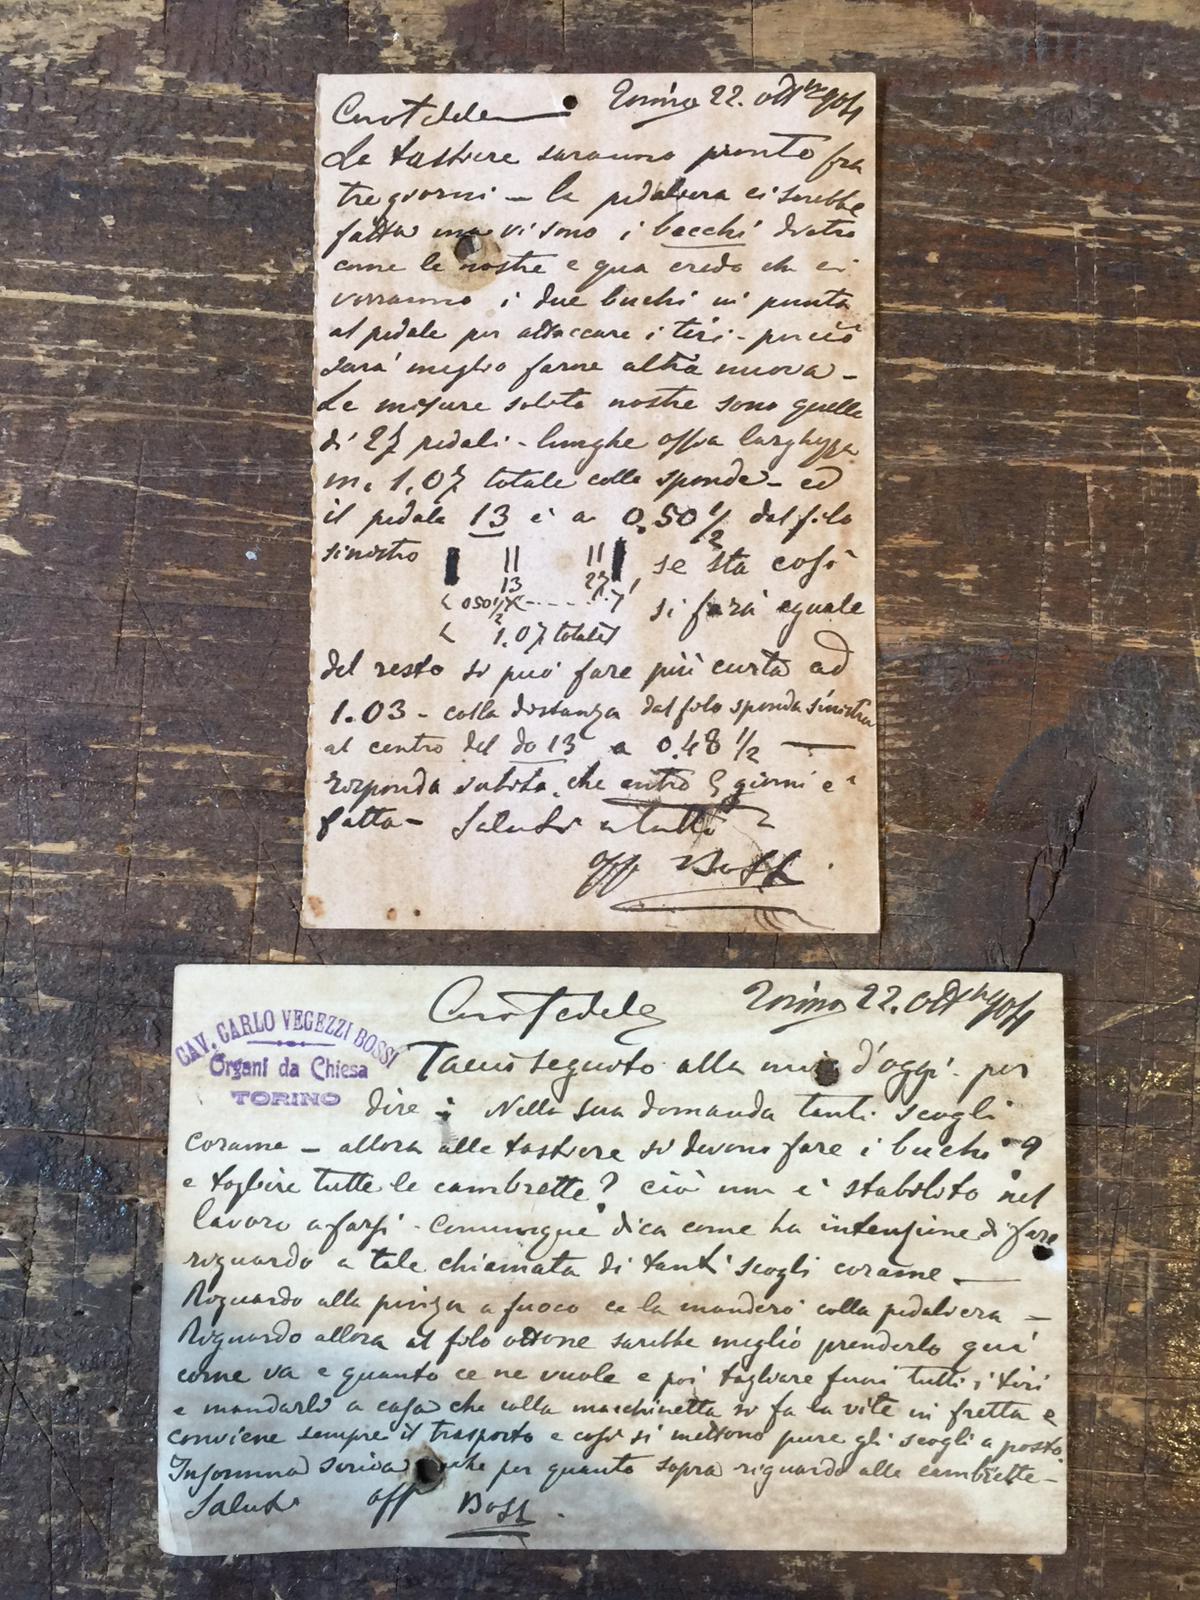 Torino 22. ott. 904
Le tastiere saranno pronte fra
tre giorni — la pedaliera ci sarebbe
fatta ma vi sono i bacchi dietro
come le nostre e qua credo che ci
vorranno i due buchi in punta
al pedale per attaccare i tiri - perciò
sarà meglio farne altra nuova —
Le misure solite nostre sono quelle
di 27 pedali - lunghe ossia larghezza
m. 1,07 totale colle sponde — ed
il pedale 13 è a 0.50 1/2 dal filo
sinistro
13 27
se sta così
0501/2
si farà eguale
1.07 totale
del resto si può fare più curta ad
1.03 - colla distanza dal filo sponda sinistra
al centro del do 13 a 0.48 1/2 —
risponda subito che entro 5 giorni è
fatta — Saluti a tutti
aff Bossi
Torino 22. ott. 904
CAV. CARLO VEGEZZI BOSSI
Organi da Chiesa
TORINO
seguito alla mia d'oggi. per
dire: Nella sua domanda tanti scogli
corame — allora alle tastiere si devono fare i buchi?
e togliere tutte le cambrette? ciò non è stabilito nel
lavoro a farsi - Comunque dica come ha intenzione di fare
riguardo a tale chiamata di tanti scogli corame —
Riguardo alla pinza a fuoco ce la manderò colla pedaliera —
Riguardo allora al filo ottone sarebbe meglio prenderlo qui
come va e quanto ce ne vuole e poi tagliare fuori tutti i tiri
e mandarli a casa che colla macchinetta si fa la vite in fretta e
conviene sempre il trasporto e così si mettono pure gli scogli a posto
Insomma scriva anche per quanto sopra riguardo alle cambrette —
Saluti aff Bossi